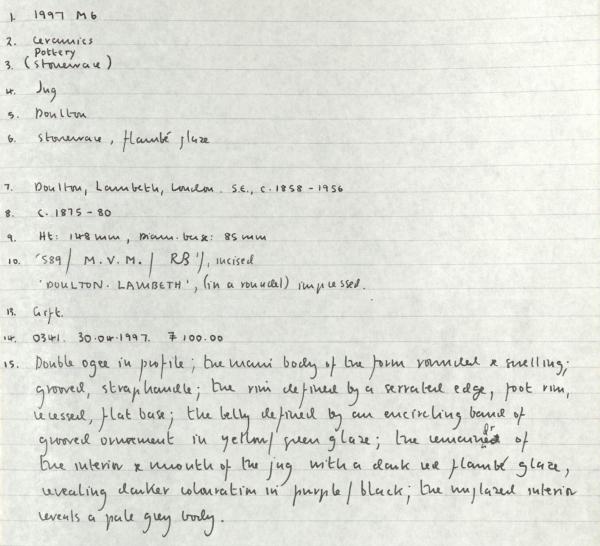 1. 1997 M6
2. Ceramics
Pottery
3. (Stoneware)
4. Jug
5. Doulton
6. Stoneware, flambé glaze
7. Doulton, Lambeth, London. S.E., c.1858-1956
8. c.1875-80
9. Ht: 148mm, Diam. base: 85mm
10. '589/ M.V.M./ RB'/, incised
'DOULTON. LAMBETH', (in a roundel) impressed.
13. Gift.
14. 0341. 30.04.1997. 100.00
15. Double ogee in profile; the main body of the form rounded & swelling;
grooved, straphandle; the rim defined by a serrated edge, foot rim,
recessed, flat base; the belly defined by an encircling band of
grooved ornament in yellow/green glaze; the remainder of
the interior & mouth of the jug with a dark red flambé glaze,
revealing darker colouration in purple/black; the unglazed interior
reveals a pale grey body.